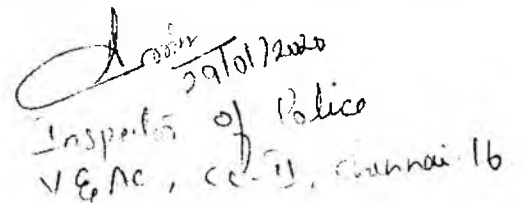 29/01/2020
Inspector of Police
V&AC, CC-II, Chennai 16